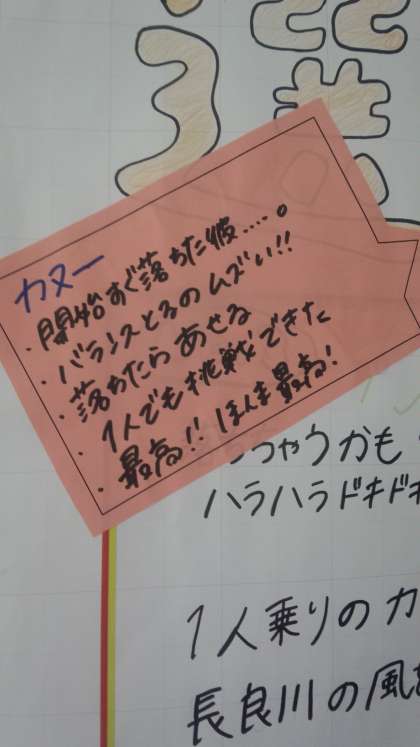 カヌー
・開始すぐ落ちた彼.....。
・バランスとるのムズい!!
・落ちたらあせる
・1人でも挑戦できた
・最高!! ほんま最高!
っちゃうかも
ハラハラドキドキ
1人乗りのカ
長良川の風を